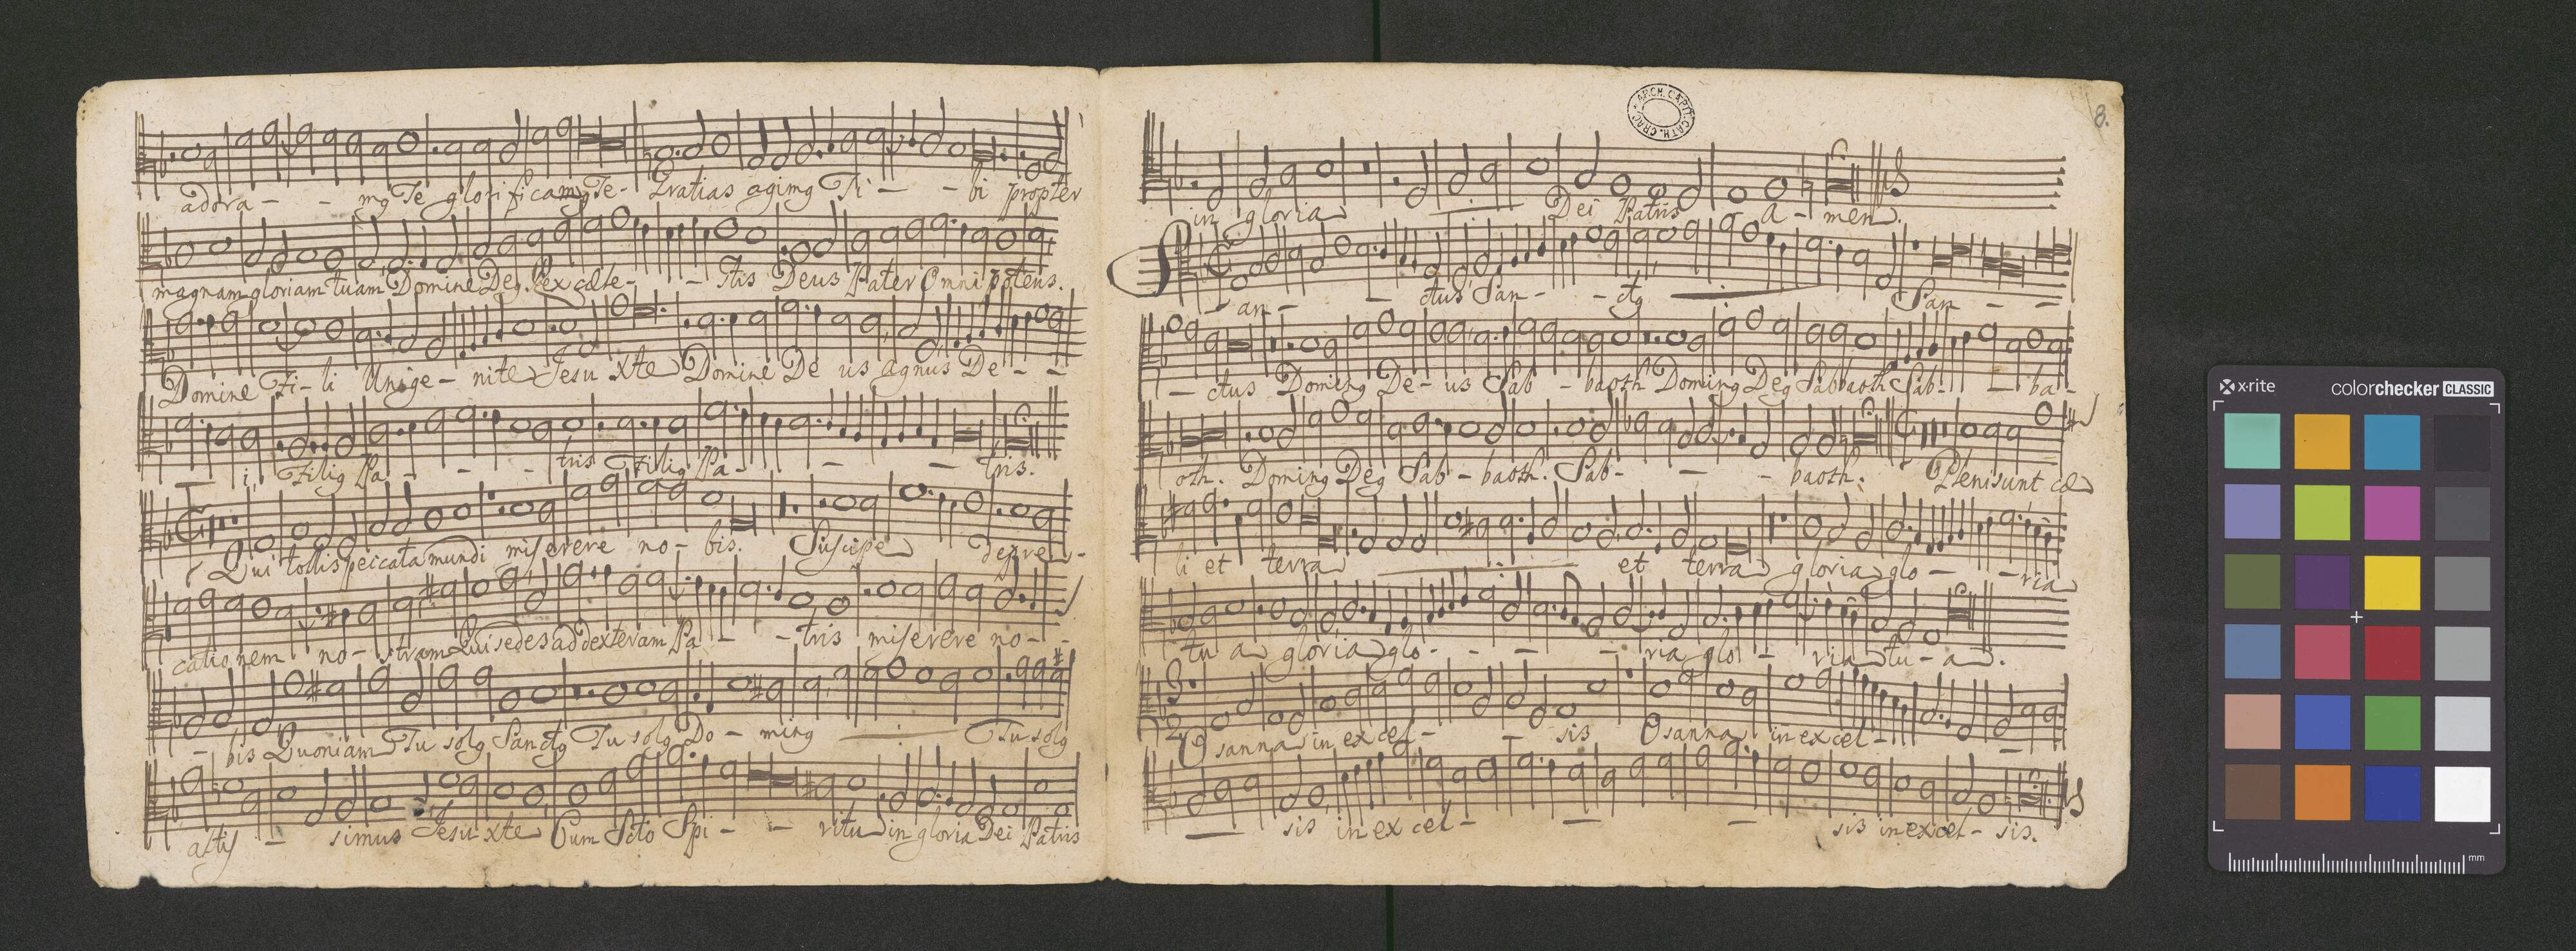 adora - - mg Te glorificamg Te - Gratias agimg Ti - - bi propter
magnam gloriam tuam Domine Deg Rex cæle - - stis Deus Pater Omnipotens.
Domine Fi - li Unige - nite Jesu Xte Domine De us Agnus De - -
i, Filig Pa - - - tris Filig Pa - - - tris.
Qui tollis peccata mundi miserere no - bis. Suscipe depre -
cationem no - stram Qui sedes ad dexteram Pa - - tris miserere no - -
- bis Quoniam Tu solg Sanctg Tu solg Do - ming Tu solg
altis - simus Jesu xte Cum Scto Spi - - ritu in gloria Dei Patris
ARCH. CAPIT. CATH. CRAC.
8.
in gloria Dei Patris A - men.
San - - ctus San - - ctg San - -
- ctus Doming De - us Sab - baoth Doming Deg Sabbaoth Sab - - ba -
oth. Doming Deg Sab - baoth. Sab - - - baoth. Pleni sunt cæ
li et terra et terra gloria glo - - ria
tu a gloria glo - - - - ria glo - ria tu - a.
Osanna in excel - - sis Osanna in excel - -
sis in ex cel - - - sis in excel - sis.
x-rite colorchecker CLASSIC
mm